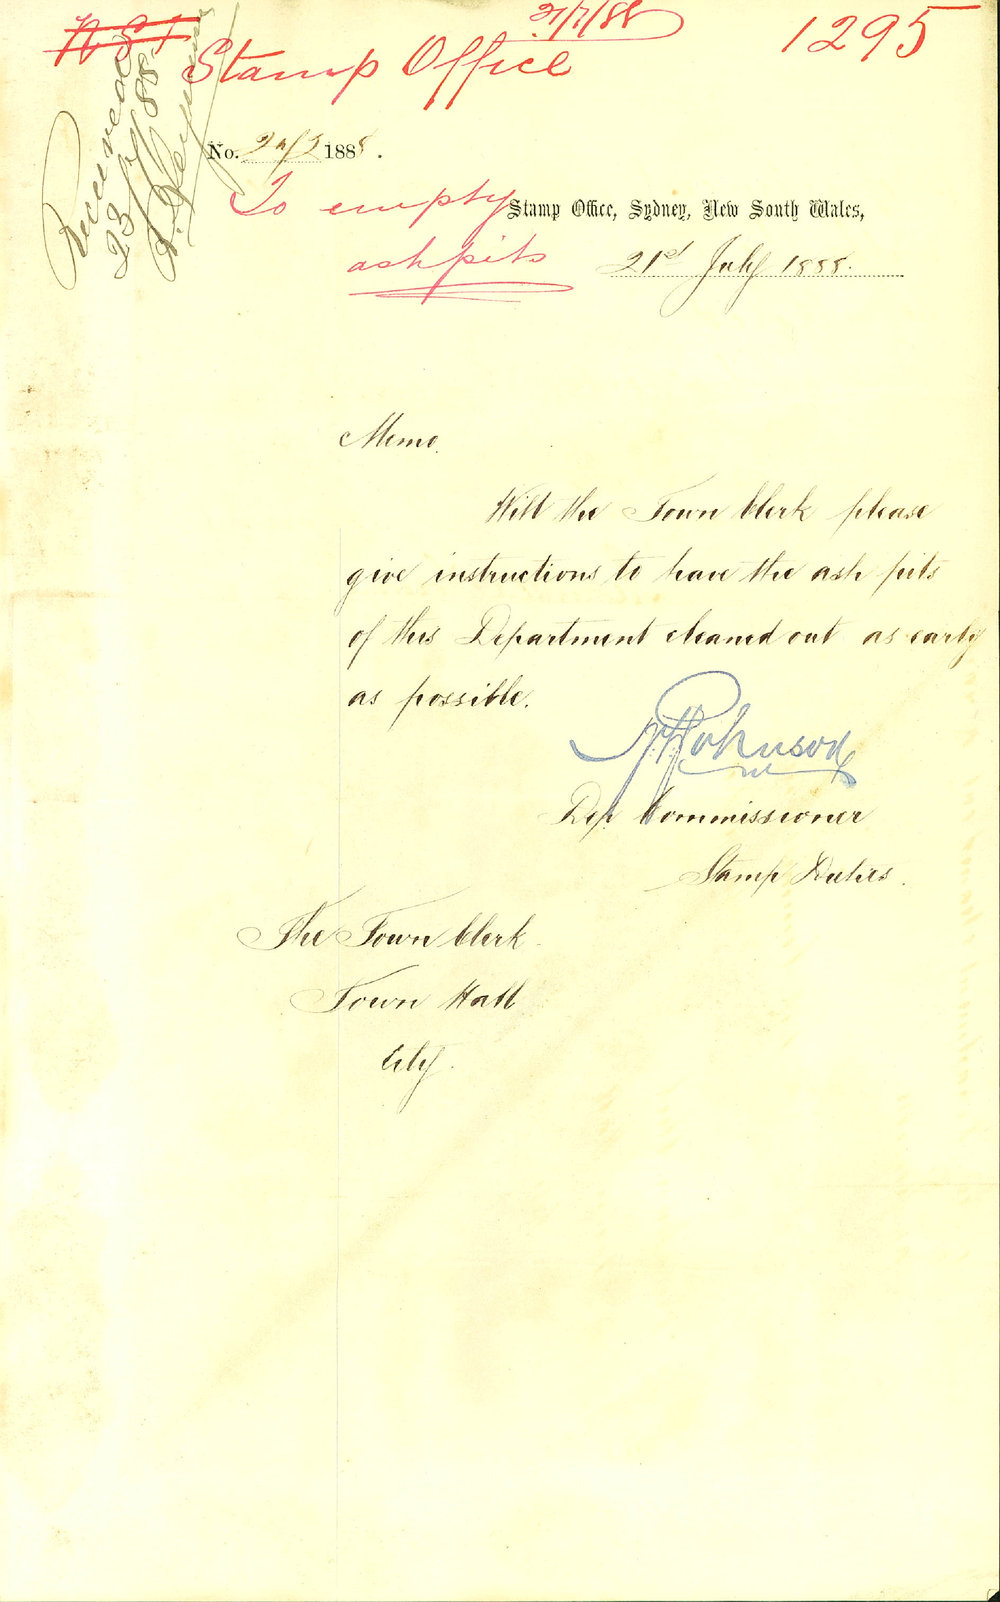 21/7/88
1295
Stamp Office
Received
23/7/88
No. 1888.
To empty
ashpits
Stamp Office, Sydney, New South Wales,
21st July 1888.
Memo.
Will the Town Clerk please
give instructions to have the ash pits
of this Department cleaned out as early
as possible.
Johnson
Dep Commissioner
Stamp Duties.
The Town Clerk
Town Hall
City.